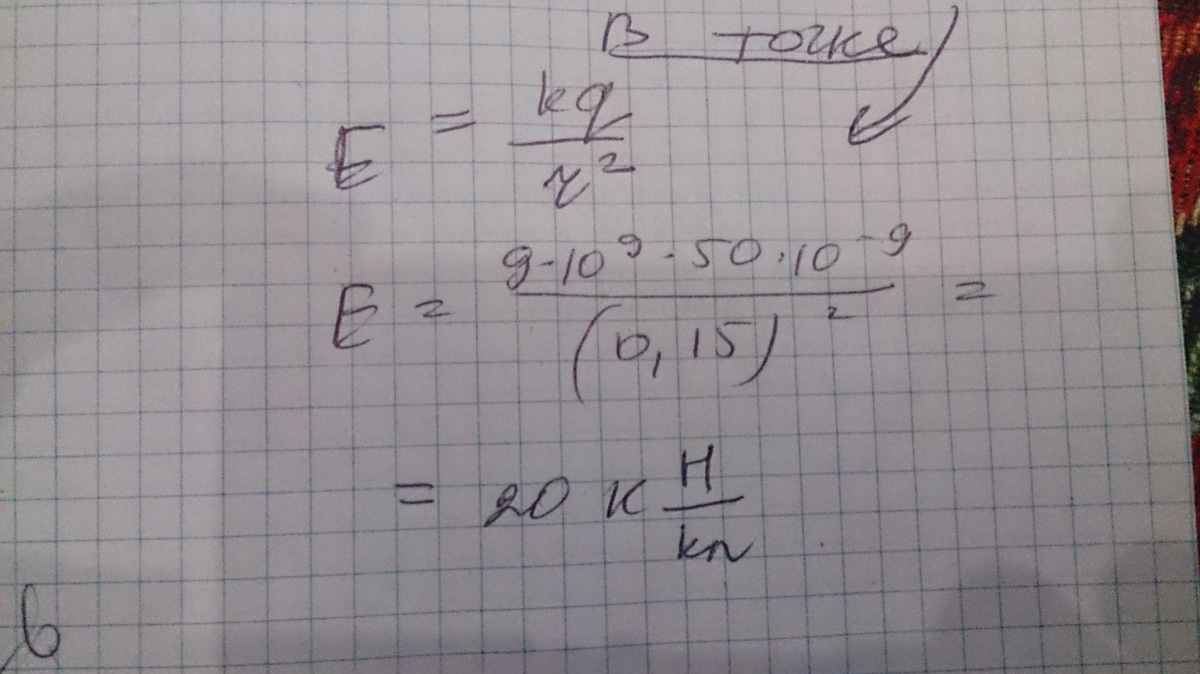 В точке
E = kq / r²
E = 9·10⁹·50·10⁻⁹ / (0,15)² =
= 20 к Н / кл
в